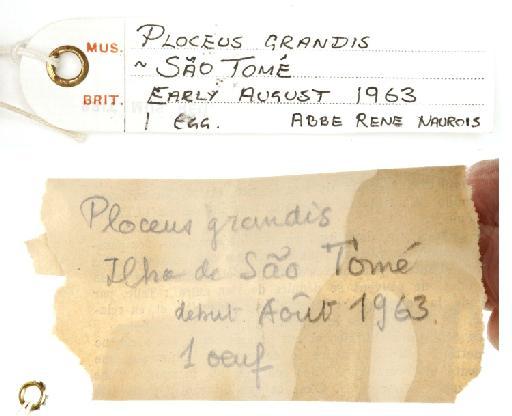 MUS. PLOCEUS GRANDIS
~ SÃO TOMÉ
BRIT. EARLY AUGUST 1963
1 EGG. ABBE RENE NAUROIS
Ploceus grandis
Ilha de São Tomé
debut Août 1963.
1 oeuf